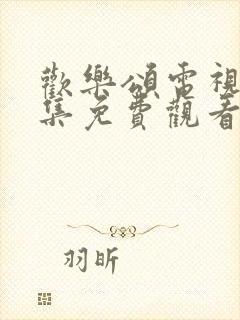 歡樂頌電視
集免費觀看
羽昕